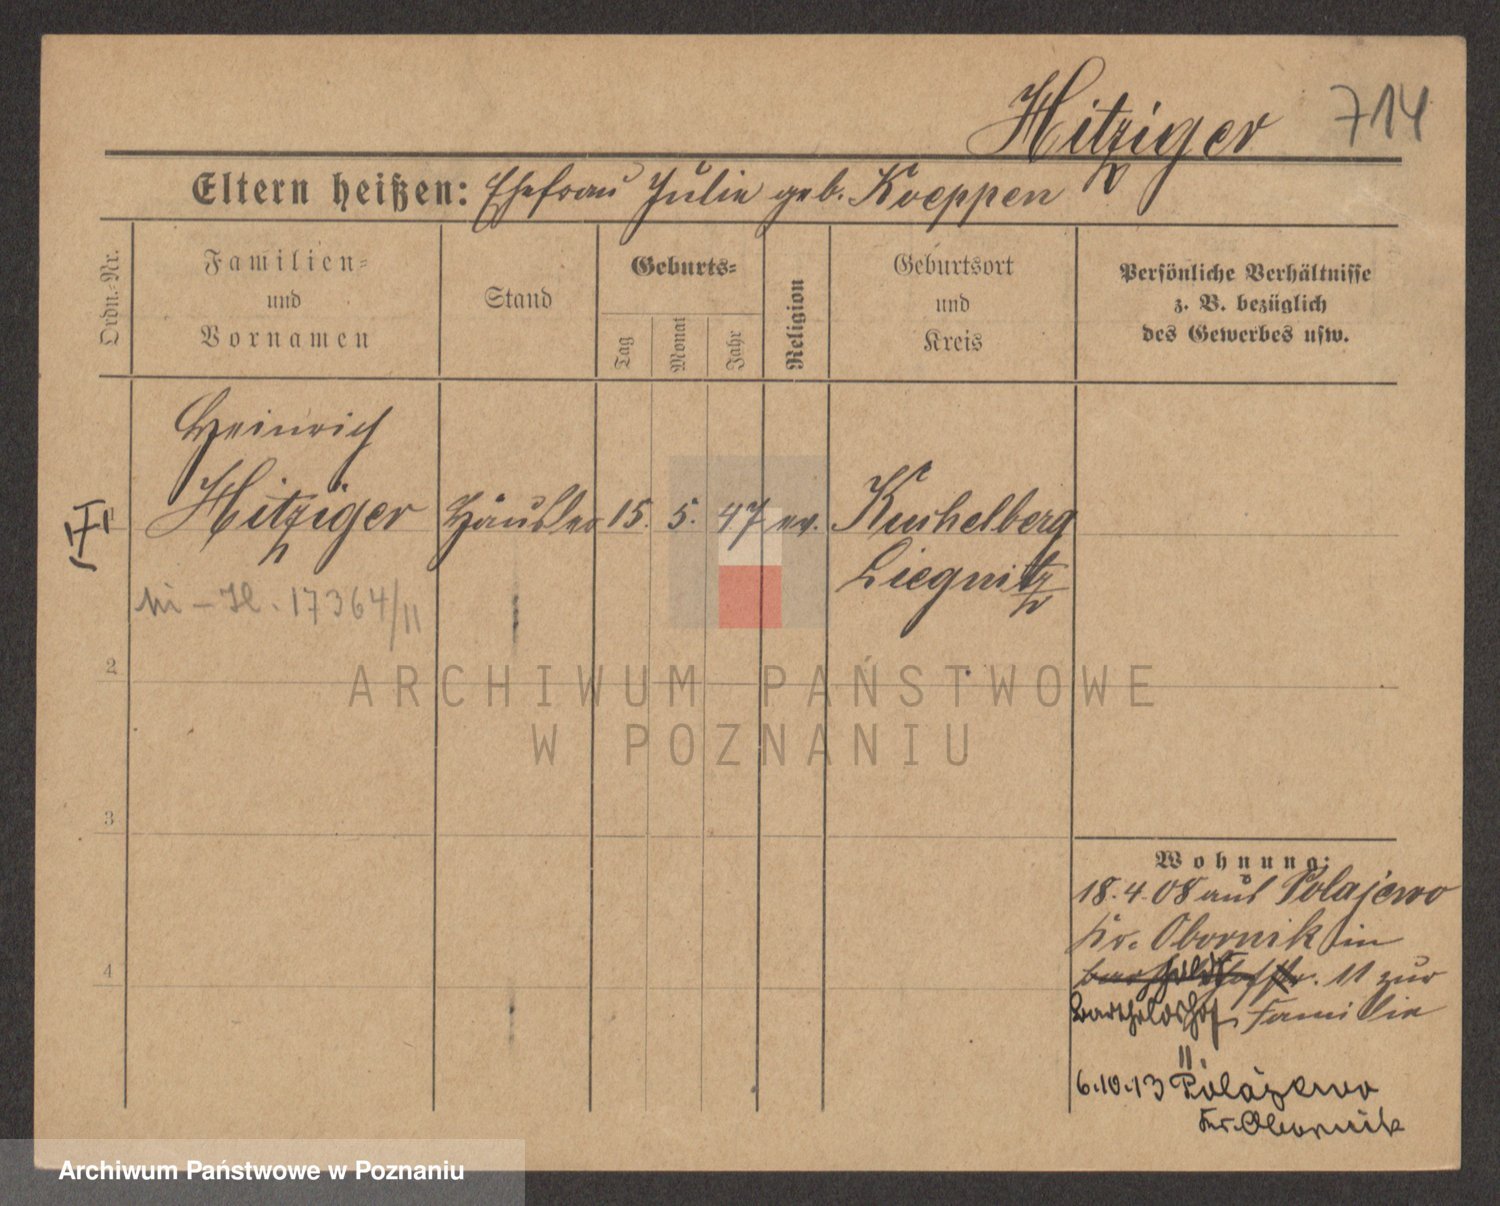 Hitziger 714
Eltern heißen: Ehefrau Julie geb. Koeppen
Ordn.-Nr.
Familien-
und
Vornamen
Stand
Geburts-
Tag
Monat
Jahr
Religion
Geburtsort
und
Kreis
Persönliche Verhältnisse
z. B. bezüglich
des Gewerbes usw.
Heinrich
Hitziger Häusler 15. 5. 47 ev. Kuchelberg
Liegnitz
17364/11
2
3
4
Wohnung:
18.4.08 aus Polajewo
Kr. Obornik in
11 zur
Bartholdshof Familie
11.
6.10.13 Polajewo
Kr. Obornik
ARCHIWUM PAŃSTWOWE
W POZNANIU
Archiwum Państwowe w Poznaniu